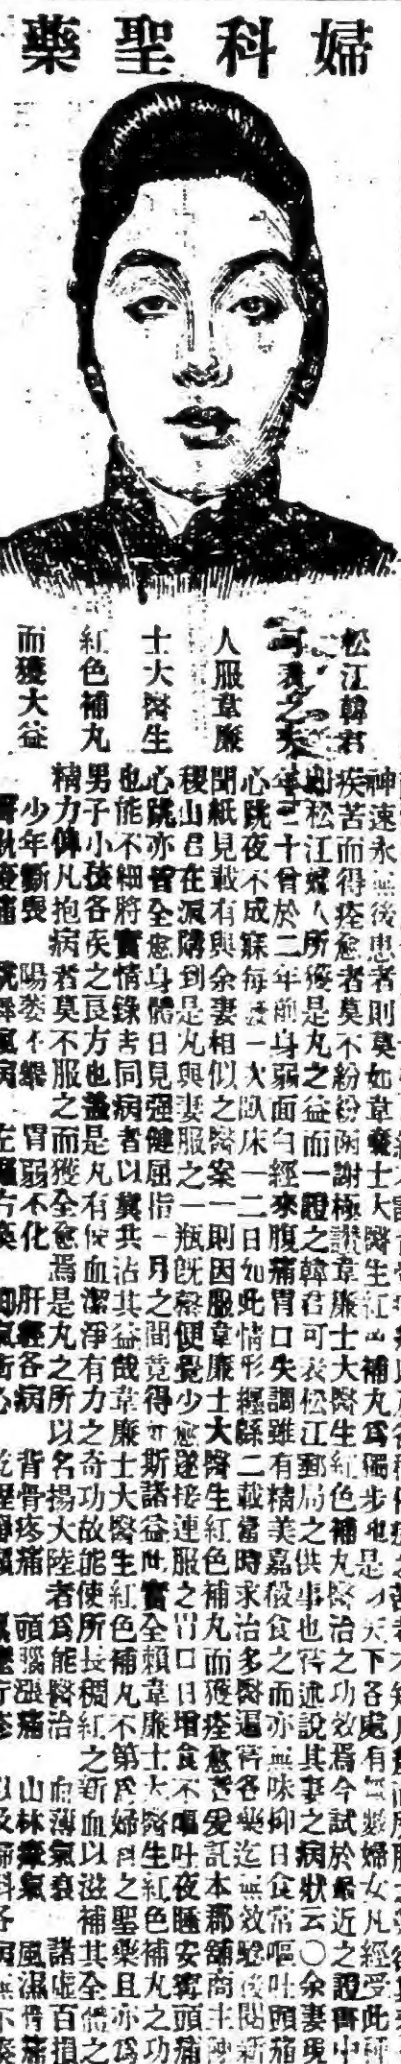 婦科聖藥
松江韓君
可表之夫
人服韋廉
士大醫生
紅色補丸
而獲大益
神速永無後患者則莫如韋廉士大醫生紅色補丸爲獨步也是以天下各處有無數婦女凡經受此種
疾苦而得痊愈者莫不紛紛函謝極讚韋廉士大醫生紅色補丸醫治之功效焉今試於最近之證書中
則松江婦人所獲是丸之益而一證之韓君可表松江郵局之供事也嘗述說其妻之病狀云〇余妻現
年三十曾於二年前身弱面白經來腹痛胃口失調雖有精美嘉殽食之而亦無味抑日食常嘔吐頭痛
心跳夜不成寐每發一次臥床一二日如此情形纒緜二載當時求治多醫遍嘗各藥迄無效驗後閱新
聞紙見載有與余妻相似之醫案一則因服韋廉士大醫生紅色補丸而獲痊愈者爰託本郡舖商主陳
稷山君在滬購到是丸與妻服之一瓶旣罄便覺少愈遂接連服之胃口日增食不嘔吐夜睡安寗頭痛
心跳亦曾全愈身體日見强健屈指一月之間竟得如斯諸益此實全賴韋廉士大醫生紅色補丸之功
也能不細將實情錄告同病者以冀共沾其益哉韋廉士大醫生紅色補丸不第爲婦科之聖藥且亦爲
男子小孩各疾之良方也蓋是丸有使血潔淨有力之奇功故能使所長稠紅之新血以滋補其全體之
精力俾凡抱病者莫不服之而獲全愈焉是丸之所以名揚大陸者爲能醫治 血薄氣衰 諸虛百損
少年斲喪 陽萎不舉 胃弱不化 肝經各病 背骨疼痛 頭腦漲痛 山林瘴氣 風濕骨痛